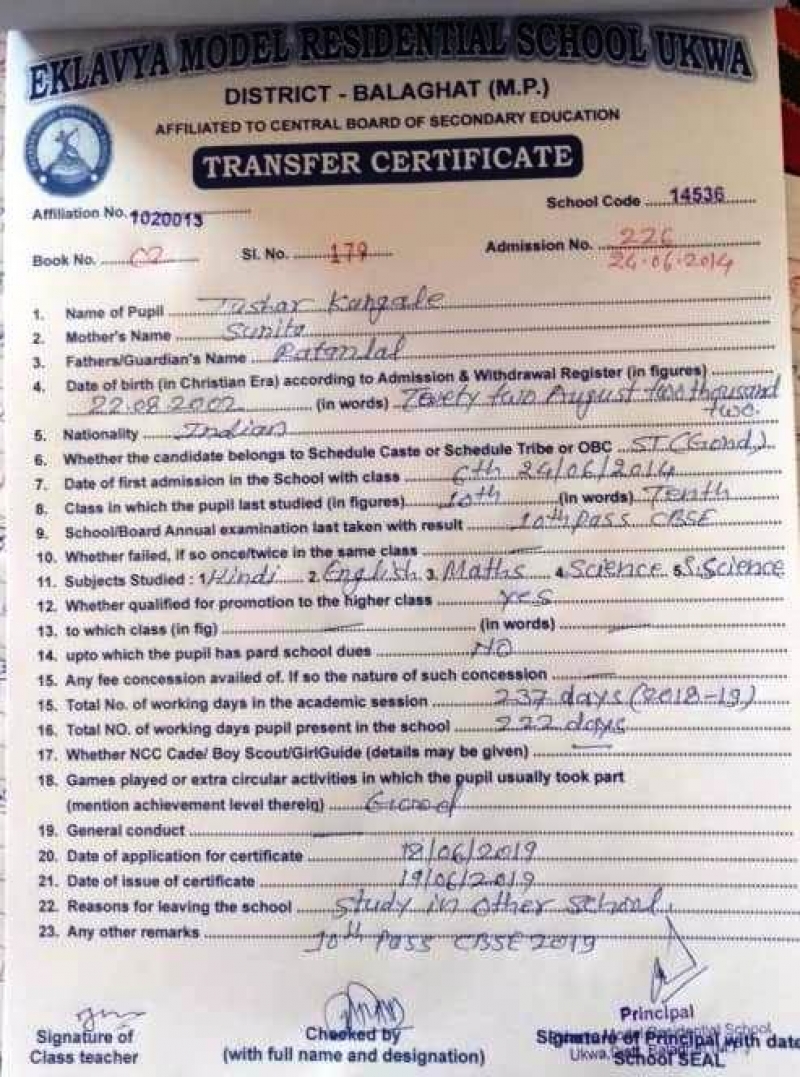 EKLAVYA MODEL RESIDENTIAL SCHOOL UKWA
DISTRICT - BALAGHAT (M.P.)
AFFILIATED TO CENTRAL BOARD OF SECONDARY EDUCATION
TRANSFER CERTIFICATE
Affiliation No. 1020013 School Code 14536
Book No. 02 Sl. No. 179 Admission No. 226
24.06.2014
1. Name of Pupil Tushar Kangale
2. Mother's Name Sunita
3. Fathers/Guardian's Name Ratanlal
4. Date of birth (in Christian Era) according to Admission & Withdrawal Register (in figures)
22.08.2002 (in words) Tewety two August two thousand
two.
5. Nationality Indian
6. Whether the candidate belongs to Schedule Caste or Schedule Tribe or OBC ST (Gond)
7. Date of first admission in the School with class 6th 24/06/2014
8. Class in which the pupil last studied (in figures) 10th (in words) Tenth
9. School/Board Annual examination last taken with result 10th Pass CBSE
10. Whether failed, if so once/twice in the same class —
11. Subjects Studied : 1 Hindi 2. English 3. Maths 4. Science 5. S. Science
12. Whether qualified for promotion to the higher class yes
13. to which class (in fig) — (in words) —
14. upto which the pupil has pard school dues NO
15. Any fee concession availed of. If so the nature of such concession —
15. Total No. of working days in the academic session 237 days (2018-19)
16. Total NO. of working days pupil present in the school 222 days
17. Whether NCC Cade/ Boy Scout/GirlGuide (details may be given) —
18. Games played or extra circular activities in which the pupil usually took part
(mention achievement level therein) Good
19. General conduct —
20. Date of application for certificate 18/06/2019
21. Date of issue of certificate 19/06/2019
22. Reasons for leaving the school study in other school.
23. Any other remarks 10th Pass CBSE 2019
Signature of Class teacher
Checked by
(with full name and designation)
Principal
Signature of Principal with date
School SEAL